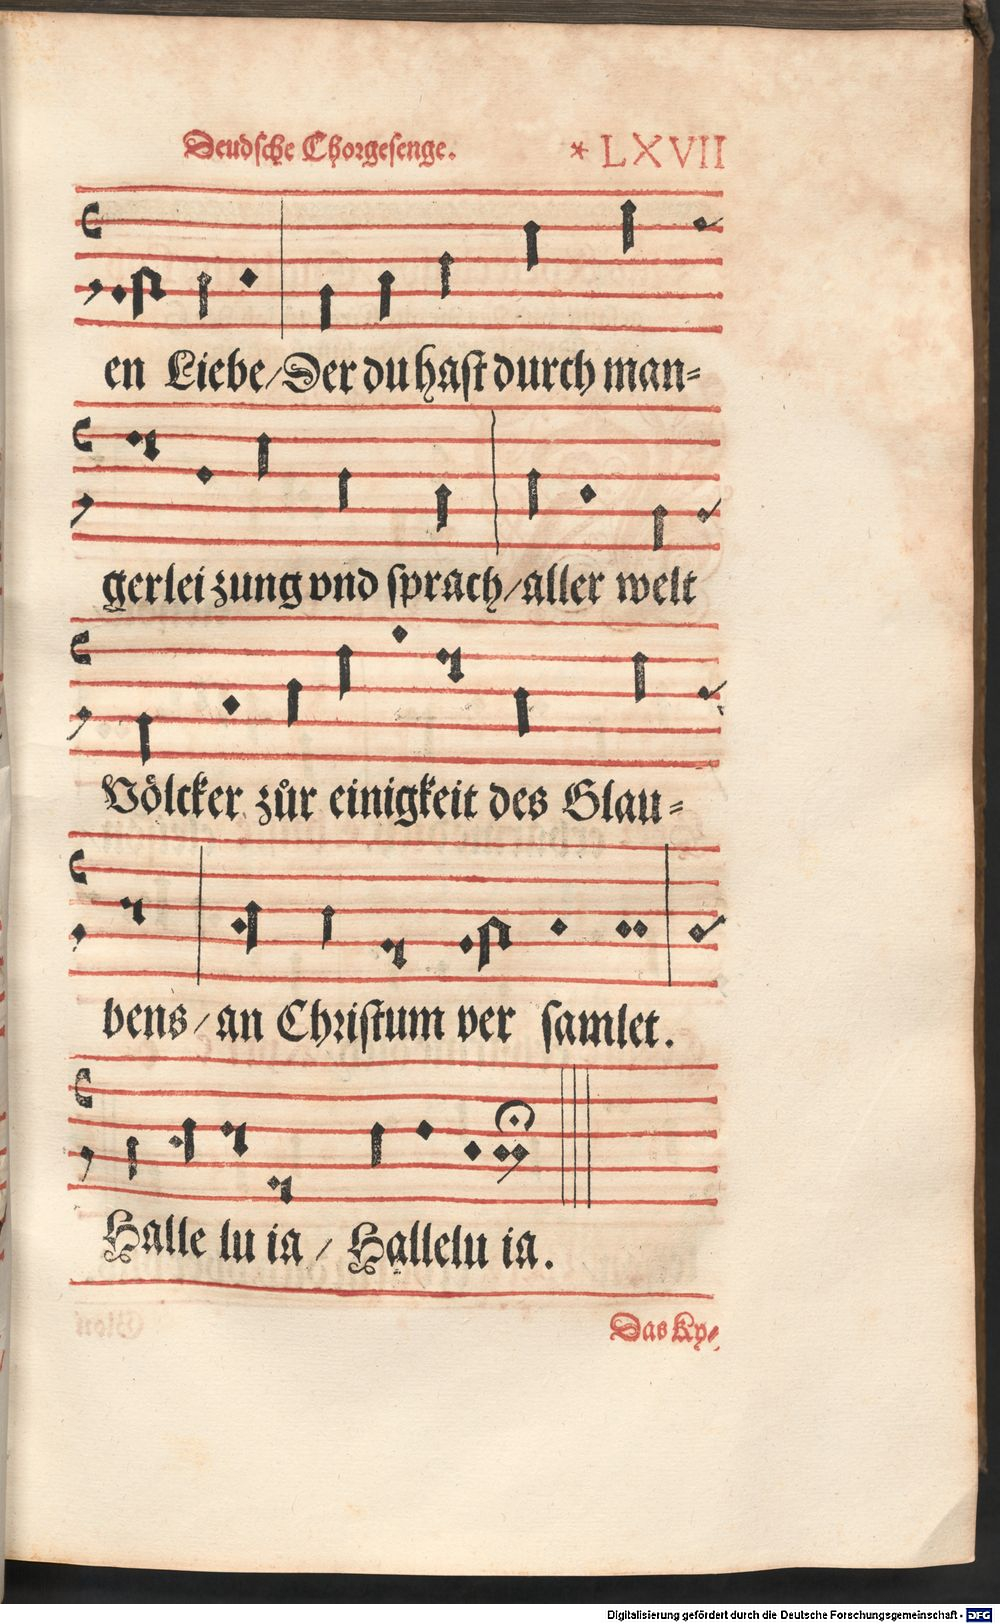 Deudsche Chorgesenge. * LXVII
en Liebe/Der du hast durch man⸗
gerlei zung vnd sprach/aller welt
Völcker zůr einigkeit des Glau⸗
bens/an Christum ver samlet.
Halle lu ia / Hallelu ia.
Das Ky⸗
Digitalisierung gefördert durch die Deutsche Forschungsgemeinschaft - DFG